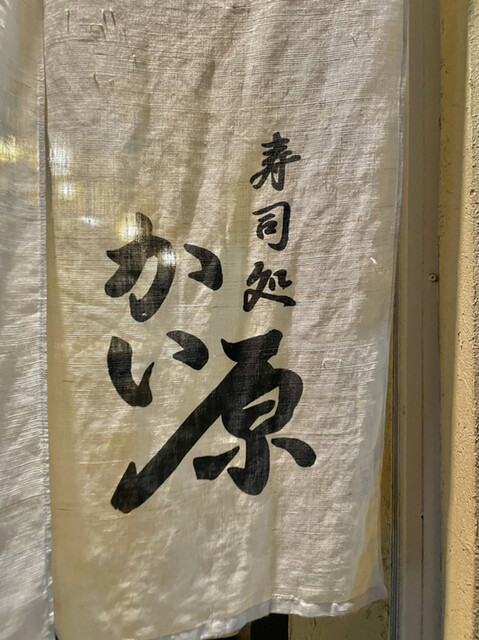 寿司処
かい原